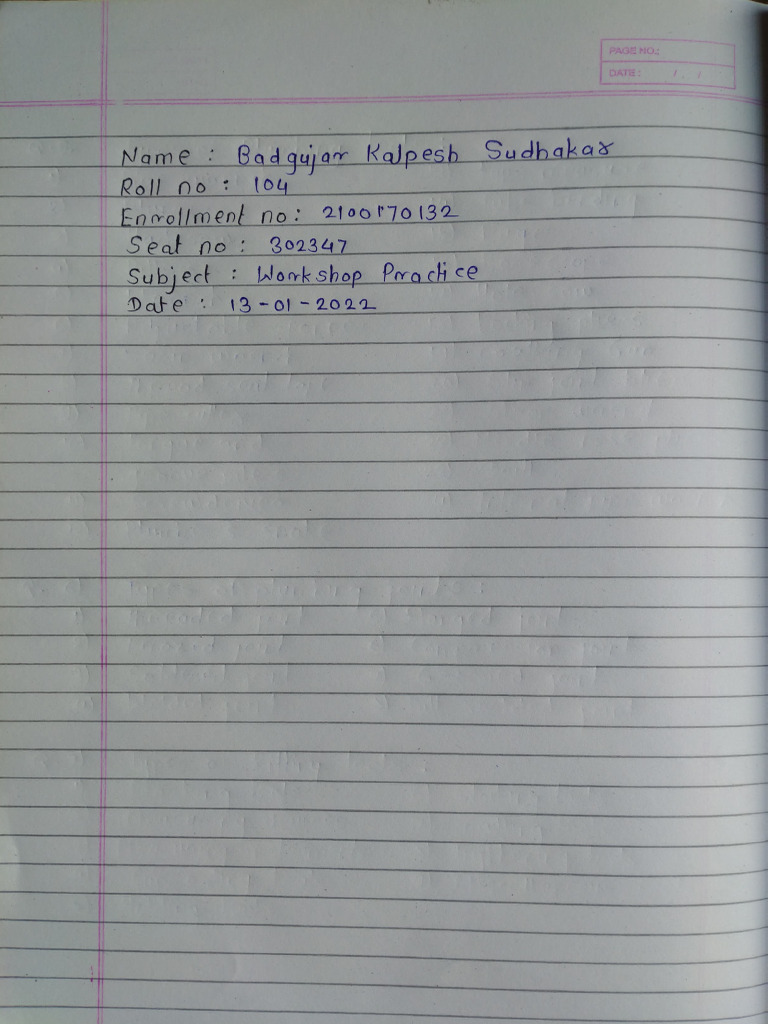 PAGE NO.:
DATE: / /
Name : Badgujar Kalpesh Sudhakar
Roll no : 104
Enrollment no: 2100170132
Seat no : 302347
Subject : Workshop Practice
Date : 13-01-2022